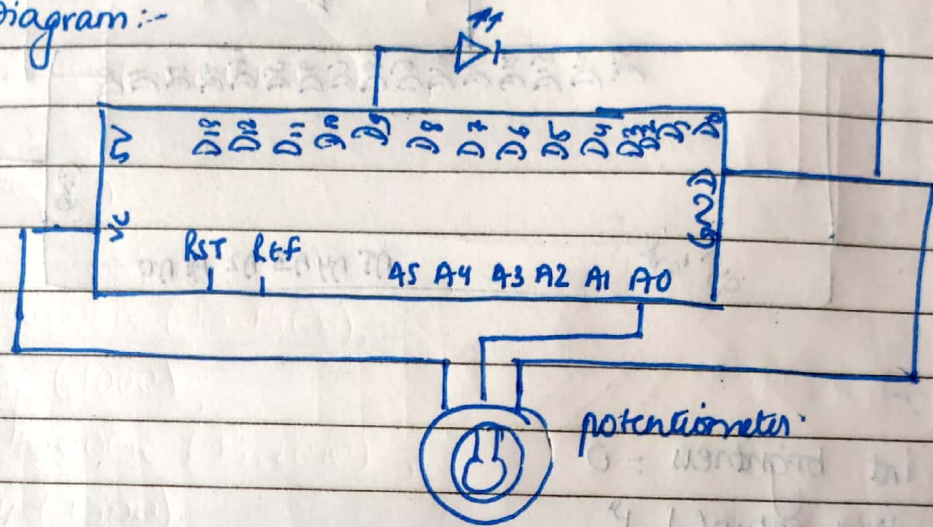 Diagram:-
5V D13 D12 D11 D10 D9 D8 D7 D6 D5 D4 D3 D2 D1 D0
GND
Vc
RST REF
A5 A4 A3 A2 A1 A0
potentiometer.